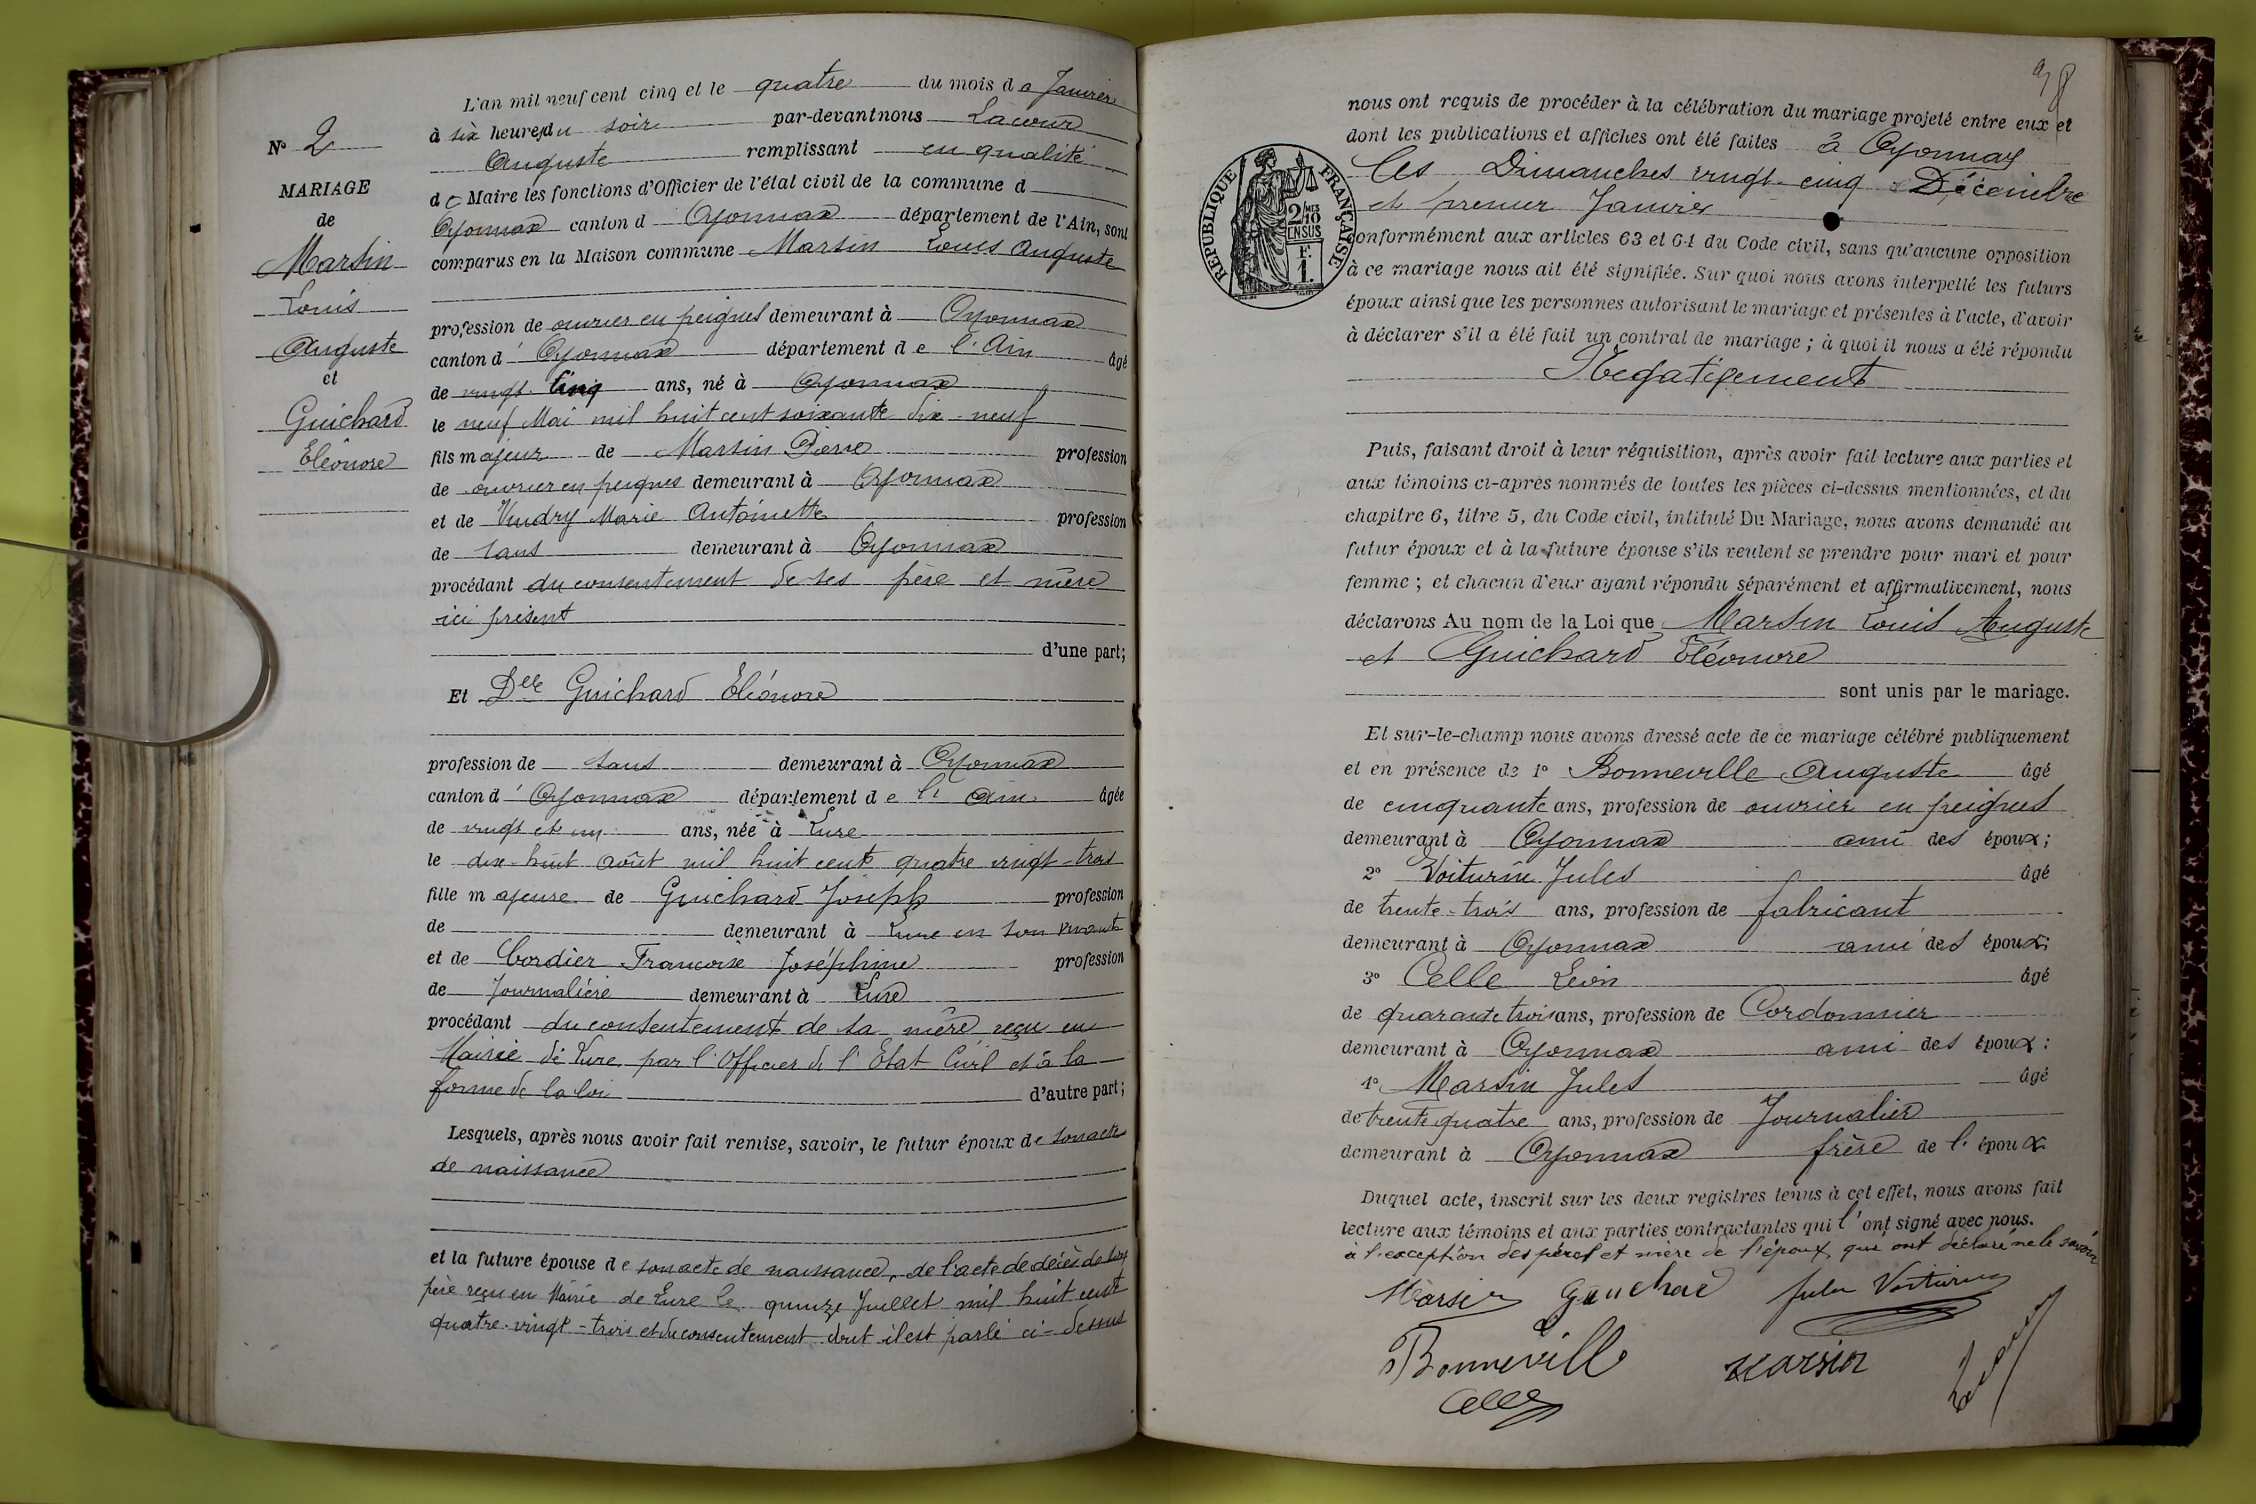 N° 2
MARIAGE
de
Martin
Louis
Auguste
et
Guichard
Eléonore
L'an mil neuf cent cinq et le quatre du mois de Janvier
à six heures du soir par-devant nous Lacour
Auguste remplissant en qualité
de Maire les fonctions d'Officier de l'état civil de la commune d
Oyonnax canton d Oyonnax département de l'Ain, sont
comparus en la Maison commune Martin Louis Auguste
profession de ouvrier en peignes demeurant à Oyonnax
canton d' Oyonnax département de l'Ain âgé
de vingt-cinq ans, né à Oyonnax
le neuf Mai mil huit cent soixante dix-neuf
fils majeur de Martin Pierre profession
de ouvrier en peignes demeurant à Oyonnax
et de Vuidry Marie Antoinette profession
de sans demeurant à Oyonnax
procédant du consentement de ses père et mère
ici présent
d'une part;
Et Delle Guichard Eléonore
profession de sans demeurant à Oyonnax
canton d' Oyonnax département de l'Ain âgée
de vingt et un ans, née à Lure
le dix-huit août mil huit cent quatre vingt-trois
fille majeure de Guichard Joseph profession
de demeurant à Lure en son vivant
et de Cordier Françoise Joséphine profession
de Journalière demeurant à Lure
procédant du consentement de sa mère reçu en
Mairie de Lure par l'Officier de l'Etat Civil et à la
forme de la loi d'autre part;
Lesquels, après nous avoir fait remise, savoir, le futur époux de son acte
de naissance
et la future épouse de son acte de naissance, de l'acte de décès de son
père reçu en Mairie de Lure le quinze Juillet mil huit cent
quatre-vingt-trois et du consentement dont il est parlé ci-dessus
98
nous ont requis de procéder à la célébration du mariage projeté entre eux et
dont les publications et affiches ont été faites à Oyonnax
les Dimanches vingt-cinq Décembre
et premier Janvier
RÉPUBLIQUE FRANÇAISE
2/10 EN SUS
F.
1.
conformément aux articles 63 et 64 du Code civil, sans qu'aucune opposition
à ce mariage nous ait été signifiée. Sur quoi nous avons interpellé les futurs
époux ainsi que les personnes autorisant le mariage et présentes à l'acte, d'avoir
à déclarer s'il a été fait un contrat de mariage; à quoi il nous a été répondu
Négativement
Puis, faisant droit à leur réquisition, après avoir fait lecture aux parties et
aux témoins ci-après nommés de toutes les pièces ci-dessus mentionnées, et du
chapitre 6, titre 5, du Code civil, intitulé Du Mariage, nous avons demandé au
futur époux et à la future épouse s'ils veulent se prendre pour mari et pour
femme; et chacun d'eux ayant répondu séparément et affirmativement, nous
déclarons Au nom de la Loi que Martin Louis Auguste
et Guichard Eléonore
sont unis par le mariage.
Et sur-le-champ nous avons dressé acte de ce mariage célébré publiquement
et en présence de 1° Bonneville Auguste âgé
de cinquante ans, profession de ouvrier en peignes
demeurant à Oyonnax ami des époux;
2° Voiturin Jules âgé
de trente-trois ans, profession de fabricant
demeurant à Oyonnax ami des époux;
3° Celle Léon âgé
de quarante trois ans, profession de Cordonnier
demeurant à Oyonnax ami des époux:
4° Martin Jules âgé
de trente quatre ans, profession de Journalier
demeurant à Oyonnax frère de l'époux
Duquel acte, inscrit sur les deux registres tenus à cet effet, nous avons fait
lecture aux témoins et aux parties contractantes qui l'ont signé avec nous.
à l'exception des père et mère de l'époux qui ont déclaré ne le savoir
Martin Guichard Jules Voiturin
Bonneville Martin
Celle